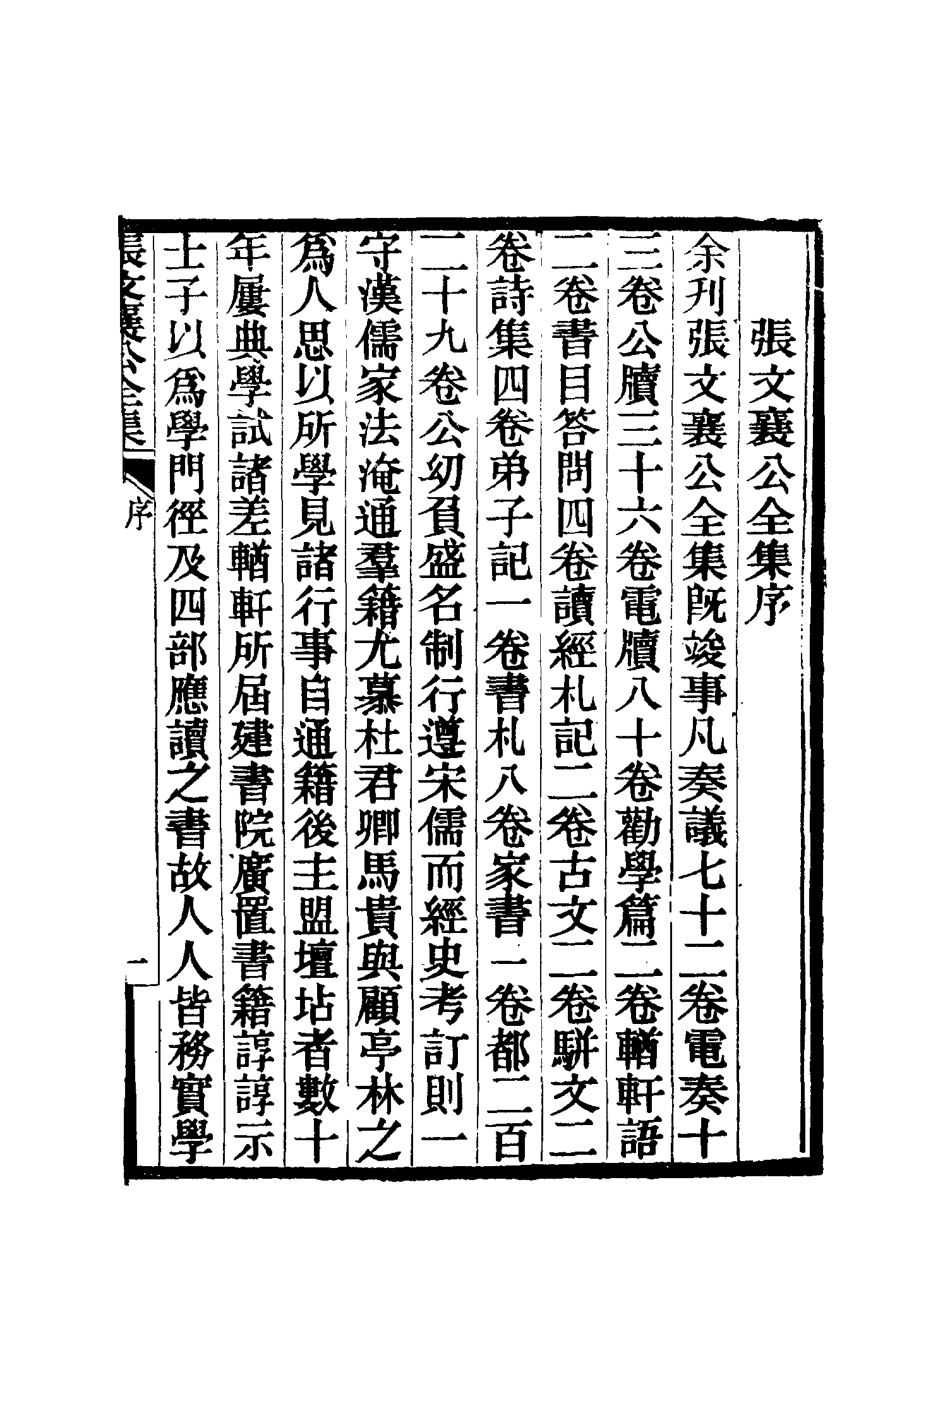 張文襄公全集序
余刋張文襄公全集旣竣事凡奏議七十二卷電奏十
三卷公牘三十六卷電牘八十卷勸學篇二卷輶軒語
二卷書目答問四卷讀經札記二卷古文二卷駢文二
卷詩集四卷弟子記一卷書札八卷家書一卷都二百
二十九卷公幼負盛名制行遵宋儒而經史考訂則一
守漢儒家法淹通羣籍尤慕杜君卿馬貴與顧亭林之
爲人思以所學見諸行事自通籍後主盟壇坫者數十
年屢典學試諸差輶軒所屆建書院廣置書籍諄諄示
士子以爲學門徑及四部應讀之書故人人皆務實學
張文襄公全集
序
一